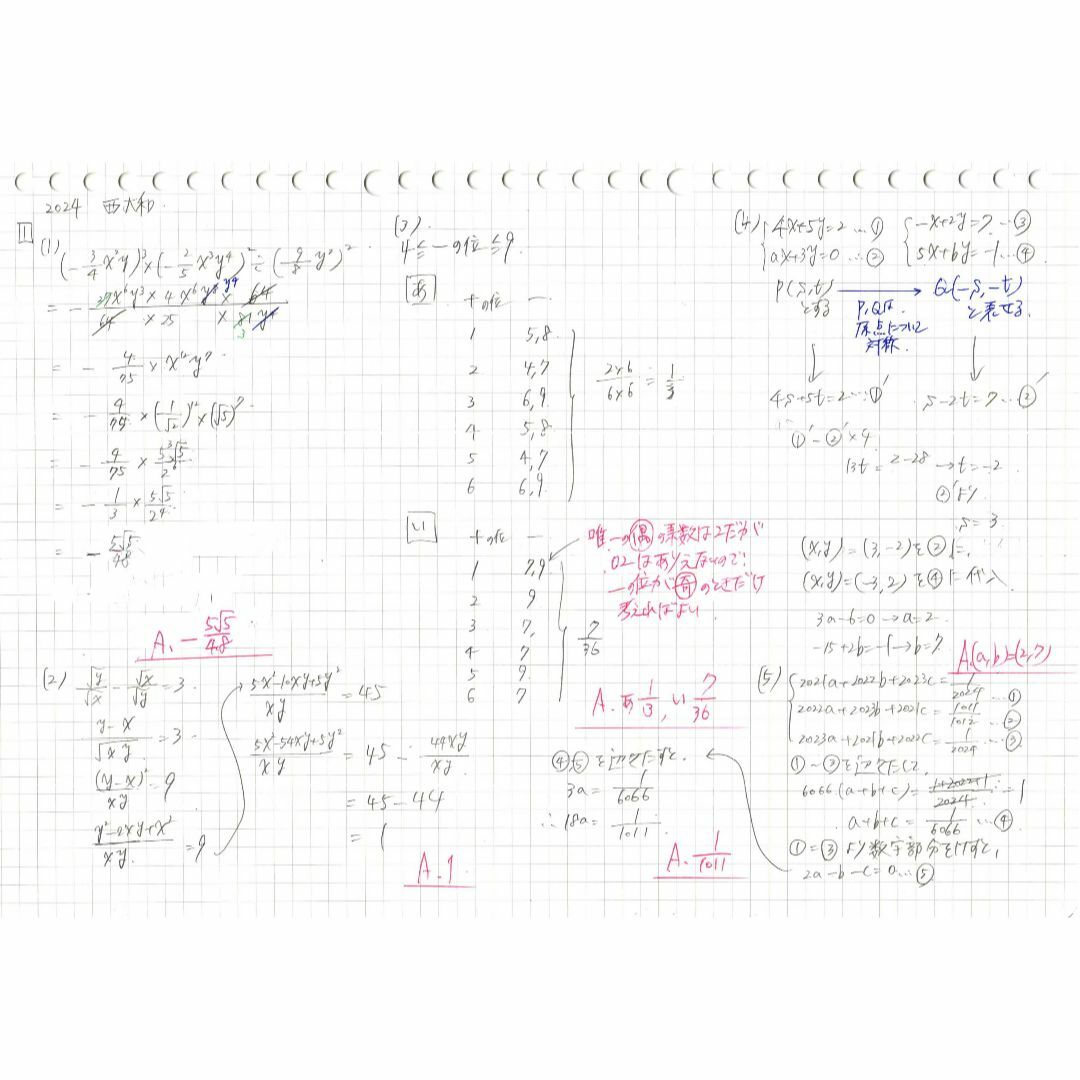 2024 西大和.
1
(1) (-3/4 x²y)³×(-2/5 x³y⁴)²÷(-9/8 y²)²
= - 27x⁶y³ × 4x⁶y⁸ y⁴ × 64 / 64 × 25 × 81 y⁴
3
= - 4/75 × x¹²y⁷
= - 4/75 × (1/√2)¹² × (√5)⁷
= - 4/75 × 5³√5/2⁶
= - 1/3 × 5√5/2⁴
= - 5√5/48
A. - 5√5/48
(2) √y/√x - √x/√y = 3
y-x/√xy = 3
(y-x)²/xy = 9
y²-2xy+x²/xy = 9
5x²-10xy+5y²/xy = 45
5x²-54xy+5y²/xy = 45 - 44xy/xy
= 45-44
= 1
A. 1
(3).
4≦一の位≦9
あ
十の位 一
1 5,8
2 4,7
3 6,9
4 5,8
5 4,7
6 6,9
2×6/6×6 = 1/3
い
十の位 一
1 7,9
2 9
3 7,
4 7
5 9
6 7
7/36
唯一の偶の素数は2だが
02はありえないので、
一の位が奇のときだけ
考えればよい
A. あ 1/3, い 7/36
(4) 4x+5y=2…①
ax+3y=0…②
-x+2y=7…③
5x+by=-1…④
P(s,t) とする
P,Qは
原点について
対称.
Q(-s,-t) と表せる
4s+5t=2…①'
s-2t=7…②'
①'-②'×4
13t=2-28→t=-2
②'より
s=3
(x,y)=(3,-2)を②に,
(x,y)=(-3,2)を④に代入
3a-6=0→a=2
-15+2b=-1→b=7
A.(a,b)=(2,7)
(5) 2021a+2022b+2023c=1/2024…①
2022a+2023b+2021c=1011/1012…②
2023a+2021b+2022c=1/2024…③
①~③を辺々たして,
6066(a+b+c)=1+2022+1/2024=1
a+b+c=1/6066…④
①=③より数字部分を
2a-b-c=0…⑤
④,⑤を辺々たすと.
3a=1/6066
∴18a=1/1011
A. 1/1011